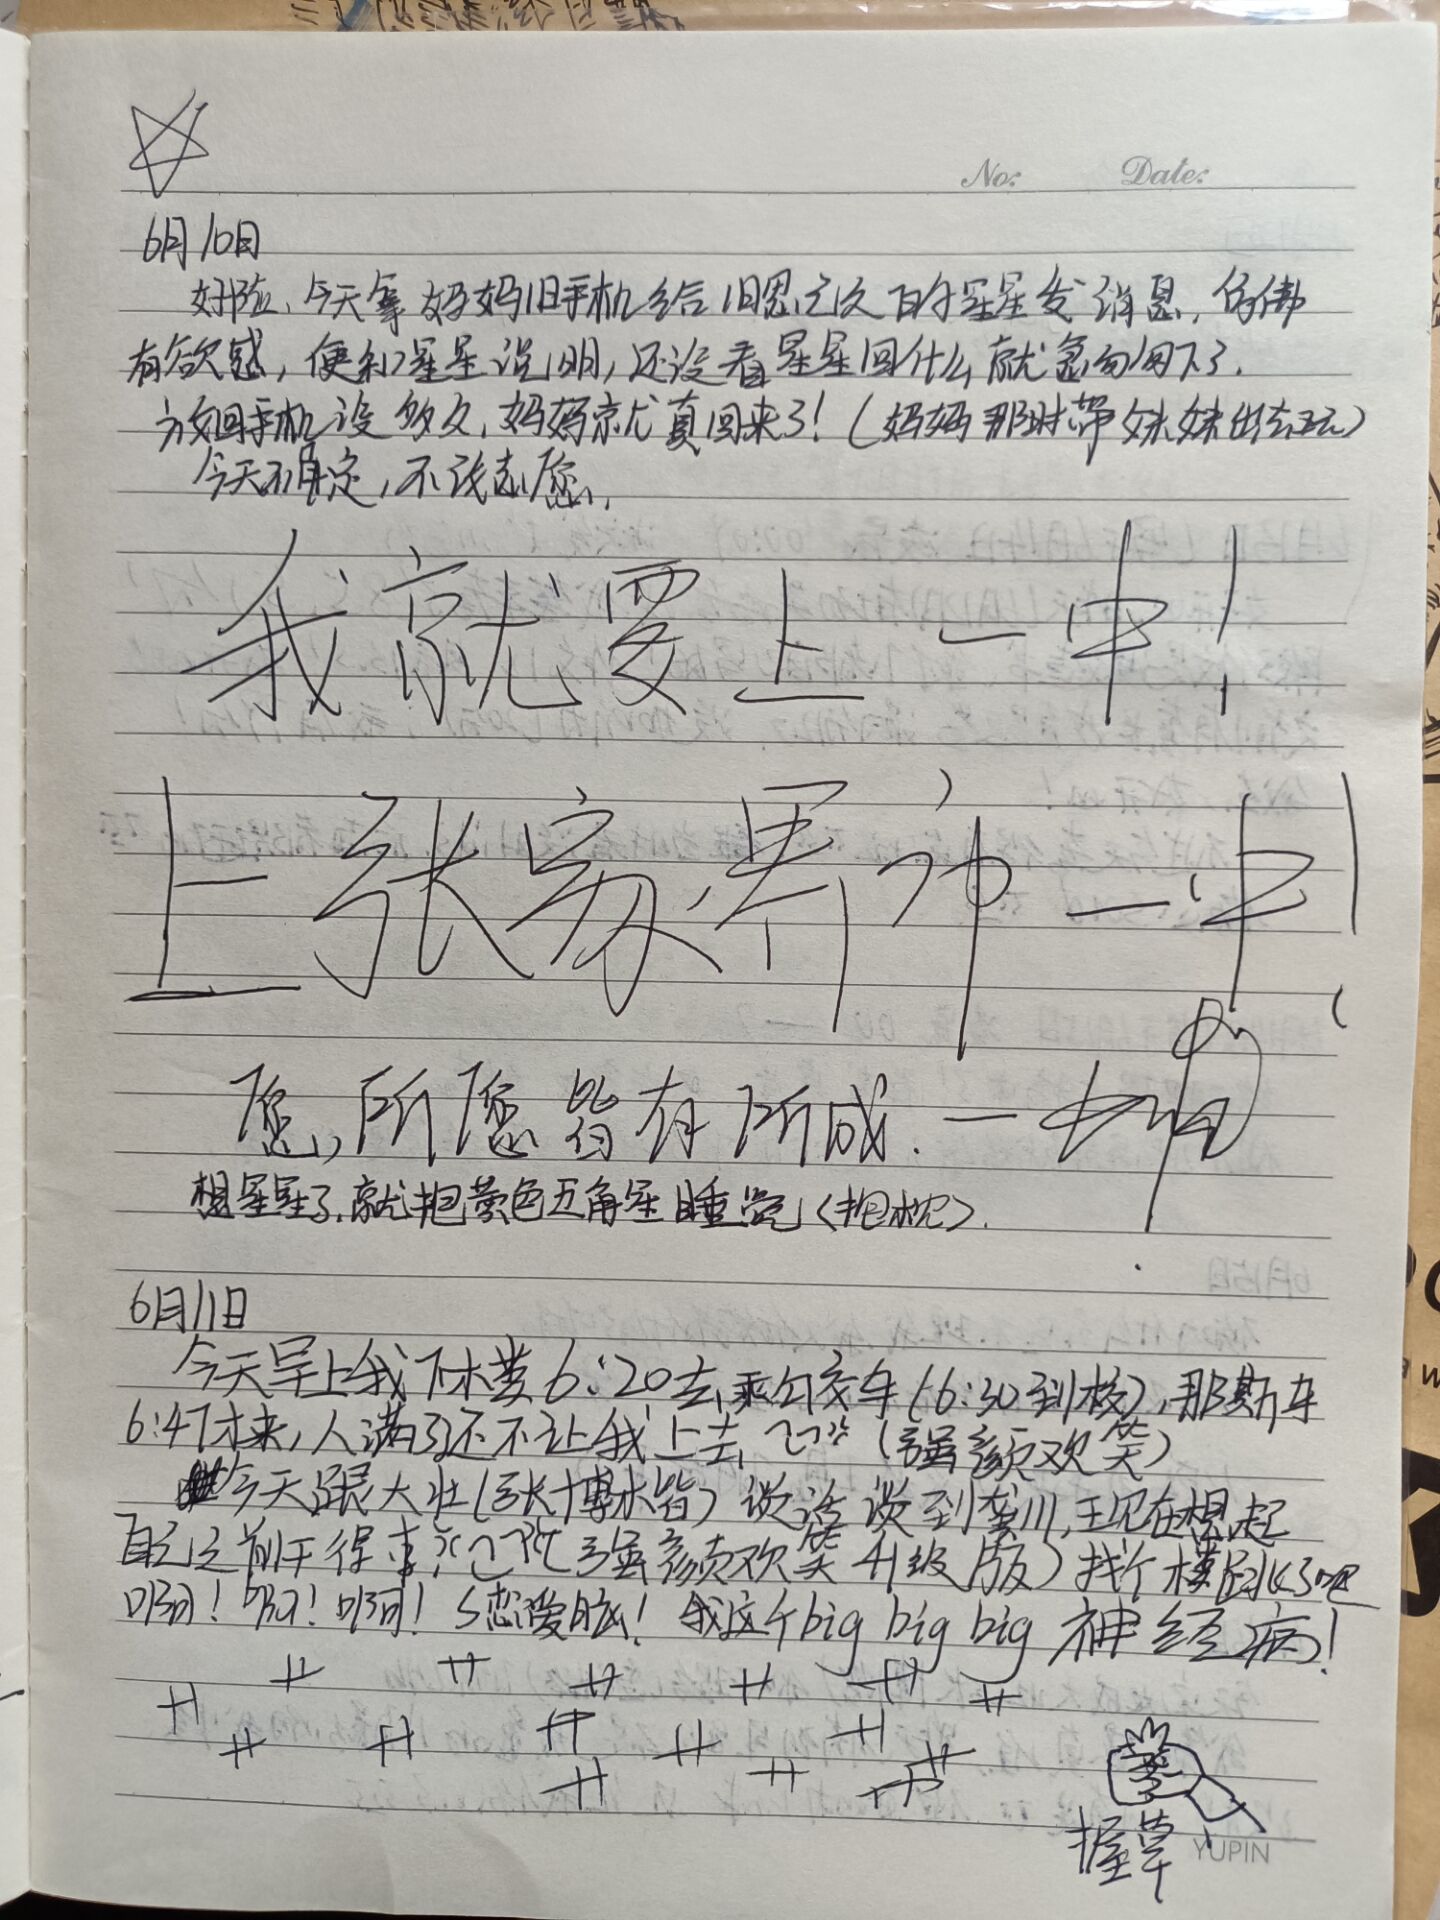 No: Date:
6月10日
好险，今天拿妈妈旧手机给旧恩已久的星星发消息，仿佛
有欲感，便和星星说明，还没看星星回什么就急匆匆下了．
放回手机没多久，妈妈就真回来了！（妈妈那时带妹妹出去玩）
今天不肯定，不谈志愿．
我就要上一中！
上张家界市一中！
愿，所愿皆有所成．一
想星星了，就抱黄色五角星睡觉（抱枕）．
6月11日
今天早上我下楼6:20去乘公交车（6:30到校），那斯车
6:47才来，人满了还不让我上去（强颜欢笑）
今天跟大壮（张博）谈话谈到龚川，现在想起
自己之前干得事（强颜欢笑升级版）找个楼跳了吧
啊！啊！啊！恋爱脑！我这个big big big神经病！
握草
YUPIN